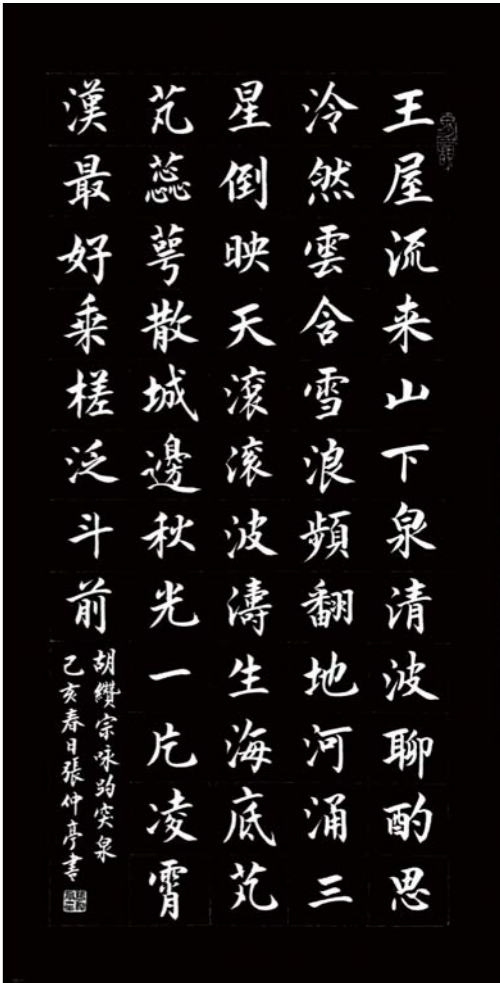 王屋流来山下泉清波聊酌思
泠然雲含雪浪頻翻地河涌三
星倒映天滾滾波濤生海底芃
芃蕊萼散城邊秋光一片凌霄
漢最好乘槎泛斗前
胡纘宗咏趵突泉
己亥春日張仲亭書